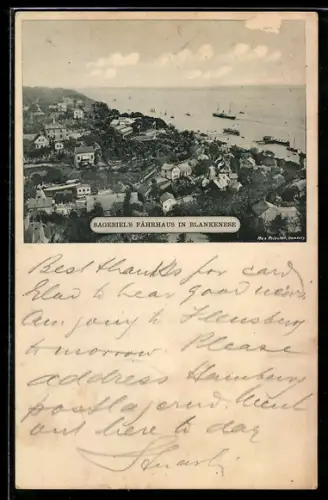 SAGEBIEL'S FÄHRHAUS IN BLANKENESE
Best thanks for card
Glad to hear good news
Am going to Flensburg
tomorrow. Please
address Hamburg
postlagernd. Went
out here to day